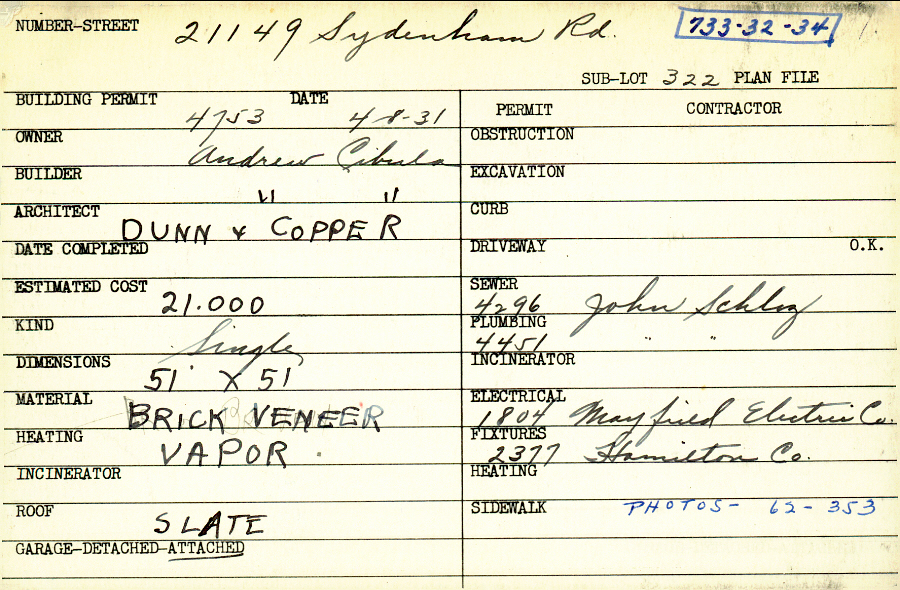 NUMBER-STREET 21149 Sydenham Rd. 733-32-34
SUB-LOT 322 PLAN FILE
BUILDING PERMIT 4753 DATE 4-8-31
OWNER Andrew Cibula
BUILDER " "
ARCHITECT DUNN & COPPER
DATE COMPLETED
ESTIMATED COST 21.000
KIND Single
DIMENSIONS 51' X 51
MATERIAL BRICK VENEER
HEATING VAPOR
INCINERATOR
ROOF SLATE
GARAGE-DETACHED-ATTACHED
PERMIT CONTRACTOR
OBSTRUCTION
EXCAVATION
CURB
DRIVEWAY O.K.
SEWER 4296 John
PLUMBING 4451 " "
INCINERATOR
ELECTRICAL 1804 Mayfield Electric Co.
FIXTURES 2377 Hamilton Co.
HEATING
SIDEWALK PHOTOS- 62-353